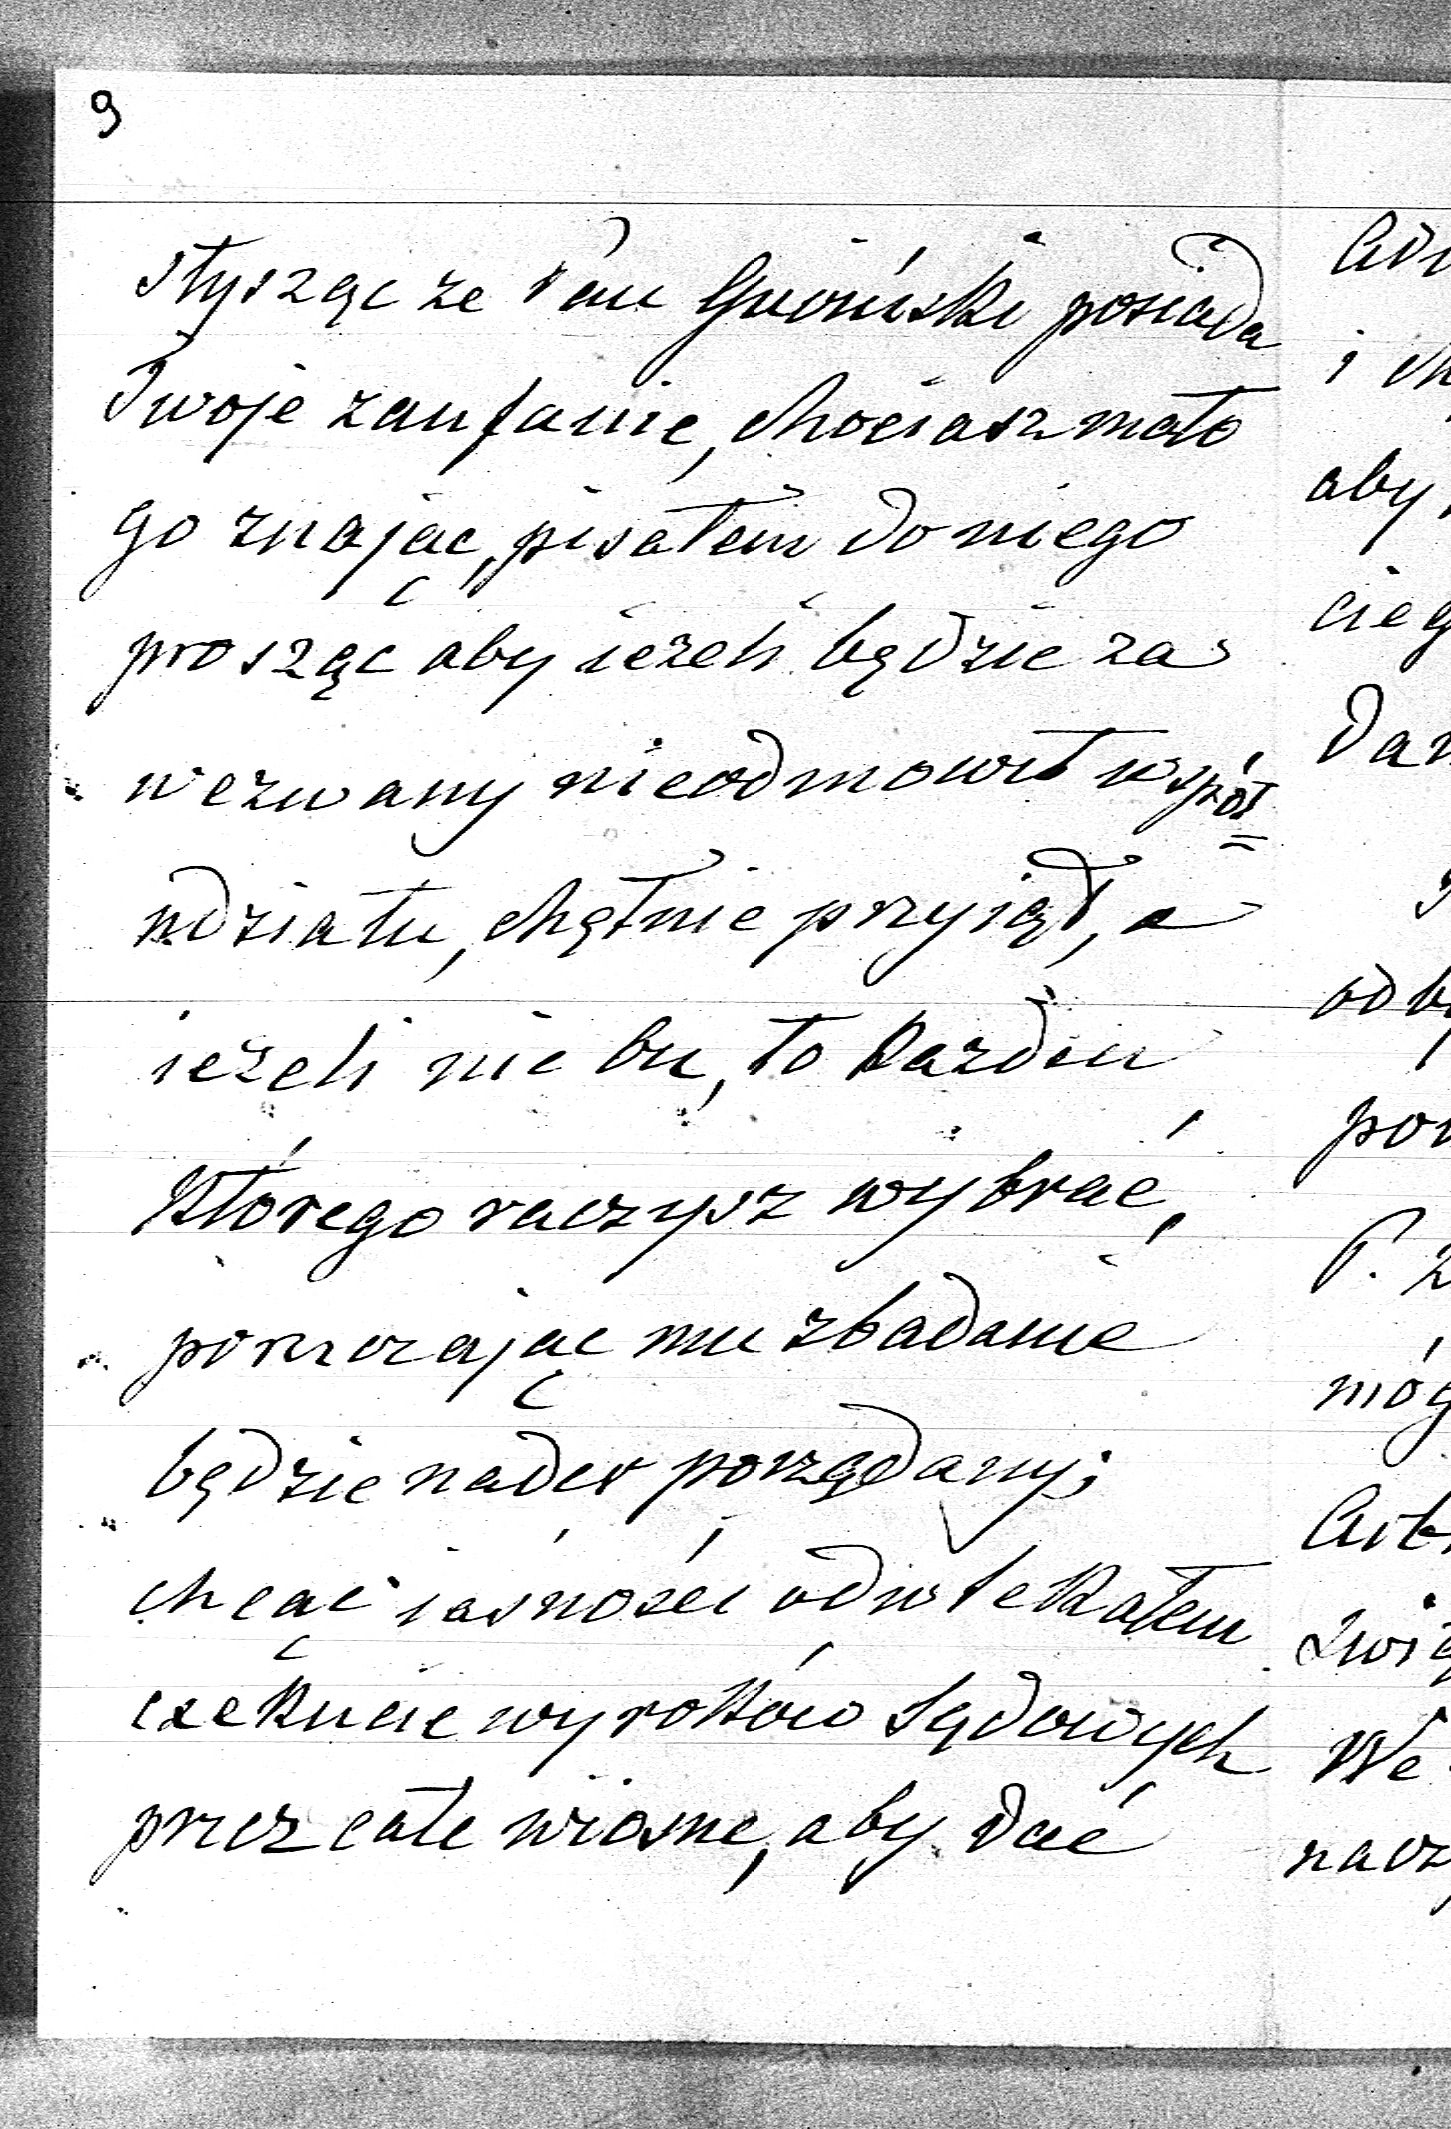 9
słysząc ze Pan Gnoiński posiada
Twoje zaufanie, chociasz mało
go znając, pisałem do niego
prosząc aby ieżeli będzie za
wezwany nieodmowił współ=
udziału, chętnie przyiął, a
ieżeli nie on, to każden
którego raczysz wybrać,
poruczając mu zbadanie
będzie nader porządany;
chcąc iasności odwlekałem
exekucie wyroków sądowych
przez całe wiosne, aby dać
i ch
aby
cieg
Dan
odby
por
P. Z
móg
Arb
Zwią
We
nacz